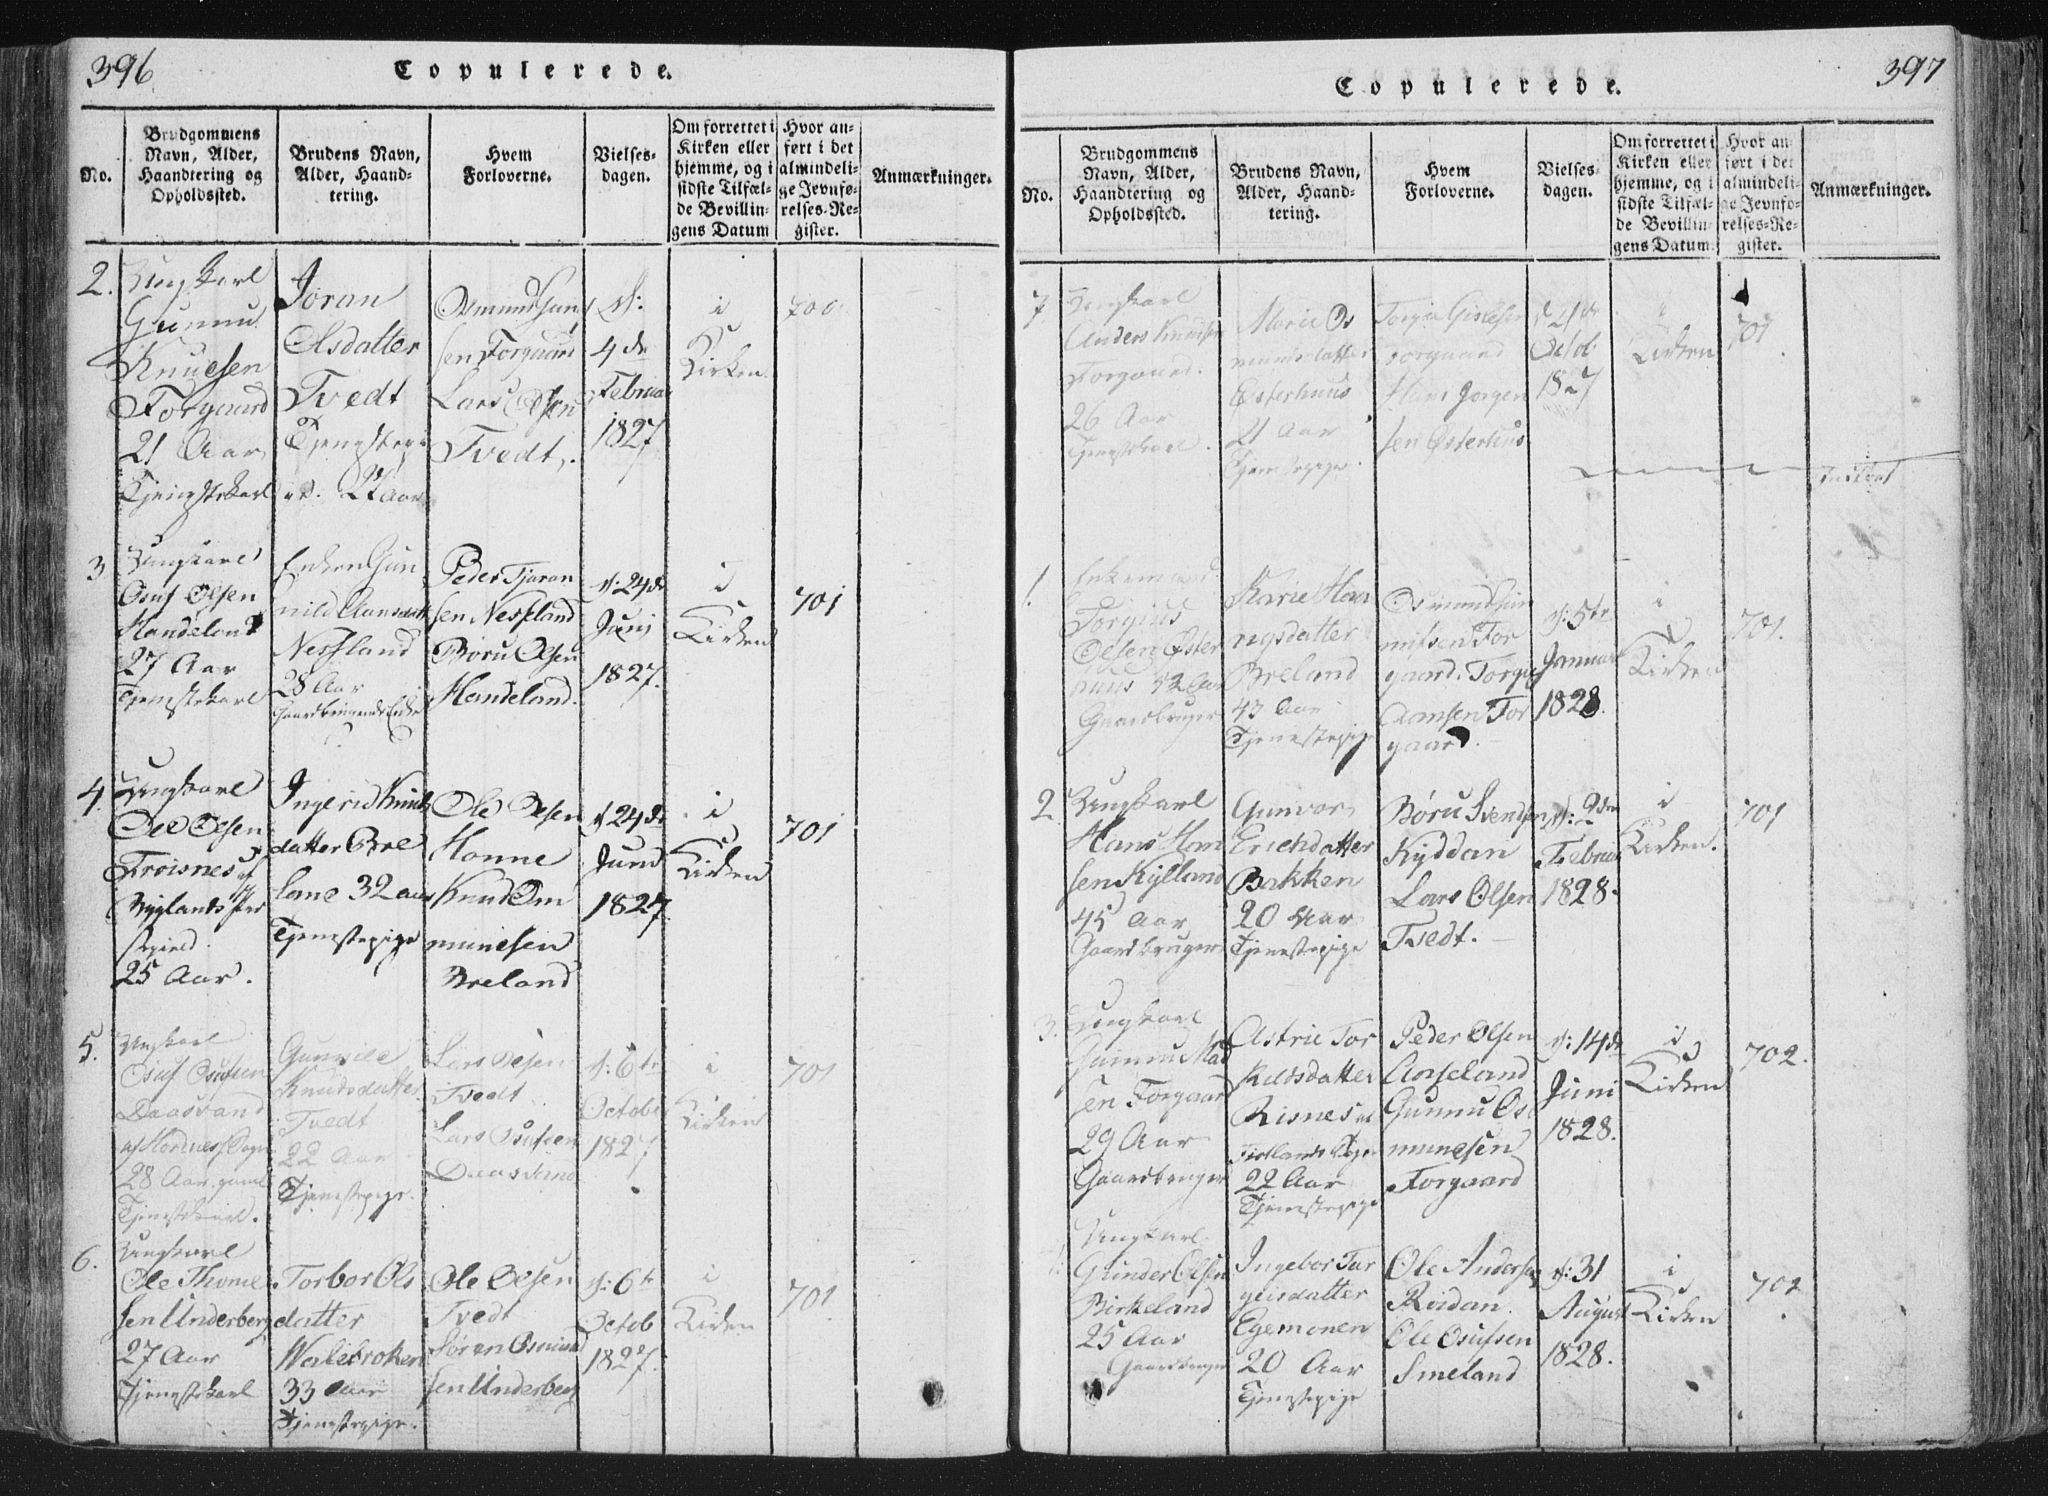 396
Copulerede.
No.
Brudgommens
Navn, Alder,
Haandtering og
Opholdssted.
Brudens Navn,
Alder, Haand-
tering.
Hvem
Forloverne.
Vielses-
dagen.
Om forrettet i
Kirken eller
hjemme, og i
sidste Tilfæl-
de Bevillin-
gens Datum
Hvor an-
ført i det
almindeli-
ge Jevnfø-
relses-Re-
gister.
Anmærkninger.
2.
Ungkarl
Gunnu
Knudsen
Forgaard
21 Aar
Tjenstekarl
Joran
Olsdatter
Tvedt
Tjenstepi
Osmund Gun
sen Forgaard
Lars Olsen
Tvedt.
d:
4de
Februar
1827
i
Kirken.
700
3
Ungkarl
Osuf Olsen
Handeland
27 Aar
Tjenstekarl
Enken Gun
nild Aansdatt
Nesland
28 Aar
Gaardbrugende Enke
Peder Tjoran
sen Nesland
Boru Olsen
Handeland.
d: 24de
Juni
1827.
i
Kirken
701
4.
Ungkarl
Ole Olsen
Froisnes af
Byglands Præ
stegield.
25 Aar.
Ingerid Knuds
datter Bre
land 32 aar
Tjenstepige
Ole Olsen
Honne
Knud Om
mundsen
Breland
d 24de
Juni
1827
i
Kirken
701
5.
Ungkarl
Osuf Osufsen
Daasvand
af Hornnes Sogn
28 Aar gaml
Tjenstekarl.
Gunvile
Knudsdatter
Tvedt
22 Aar
Tjenstepige.
Lars Olsen
Tvedt
Lars Osufsen
Daasvand
d: 6te
October
1827
i
Kirken
701
6.
Ungkarl
Ole Thome
sen Underberg
27 Aar
Tjenstekarl
Torbor Ols
datter
Walebroken
33 aar
Tjenstepige.
Ole Olsen
Tvedt
Søren Osmund
sen Underberg
d: 6te
Octob
1827.
i
Kirken
701
397
Copulerede.
No.
Brudgommens
Navn, Alder,
Haandtering og
Opholdssted.
Brudens Navn,
Alder, Haand-
tering.
Hvem
Forloverne.
Vielses-
dagen.
Om forrettet i
Kirken eller
hjemme, og i
sidste Tilfæl-
de Bevillin-
gens Datum.
Hvor an-
ført i det
almindeli-
ge Jevnfø-
relses-Re-
gister.
Anmærkninger.
7.
Ungkarl
Anders Knudsen
Forgaard.
26 Aar
Tjenstekarl.
Marie Os
mundsdatter
Østerhuus
21 Aar
Tjenstepige.
Forgaard
Hans Jorgen
sen Østerhus
d 21de
Octob
1827
Kirken
701
1.
Enkemand
Torgius
Olsen Øster
huus 42 Aar
Gaardbruger
Karie Haa
vgsdatter
Breland
43 Aar
Tjenestepige
Osmund Gun
nufsen For
gaard. Torgius
Aansen For
gaard.
d: 5te
Januar
1828.
i
Kirken
701.
2.
Ungkarl
Hans Han
sen Kylland
45 Aar
Gaardbruger
Gunvor
Erichdatter
Bakken
20 Aar
Tjenestepige
Børu Svendsen
Kyddan
Lars Olsen
Tvedt.
d: 2den
Februar
1828.
i
Kirken.
701
3.
Ungkarl
Gunnu Mad
sen Forgaard
29 Aar
Gaardbruger
Astrie Tor
kildsdatter
Risnes af
22 Aar
Tjenestepige
Peder Olsen
Aaseland
Gunnu Os
mundsen
Forgaard
d: 14de
Juni
1828.
i
Kirken
702.
Ungkarl
Gunder Olsen
Birkeland
25 Aar
Gaardbruger
Ingebor Tar
geisdatter
Egemonen
20 Aar
Tjenestepige
Ole Andersen
Røidan.
Ole Osufsen
Smeland
d: 31
August
1828.
i
Kirken
702